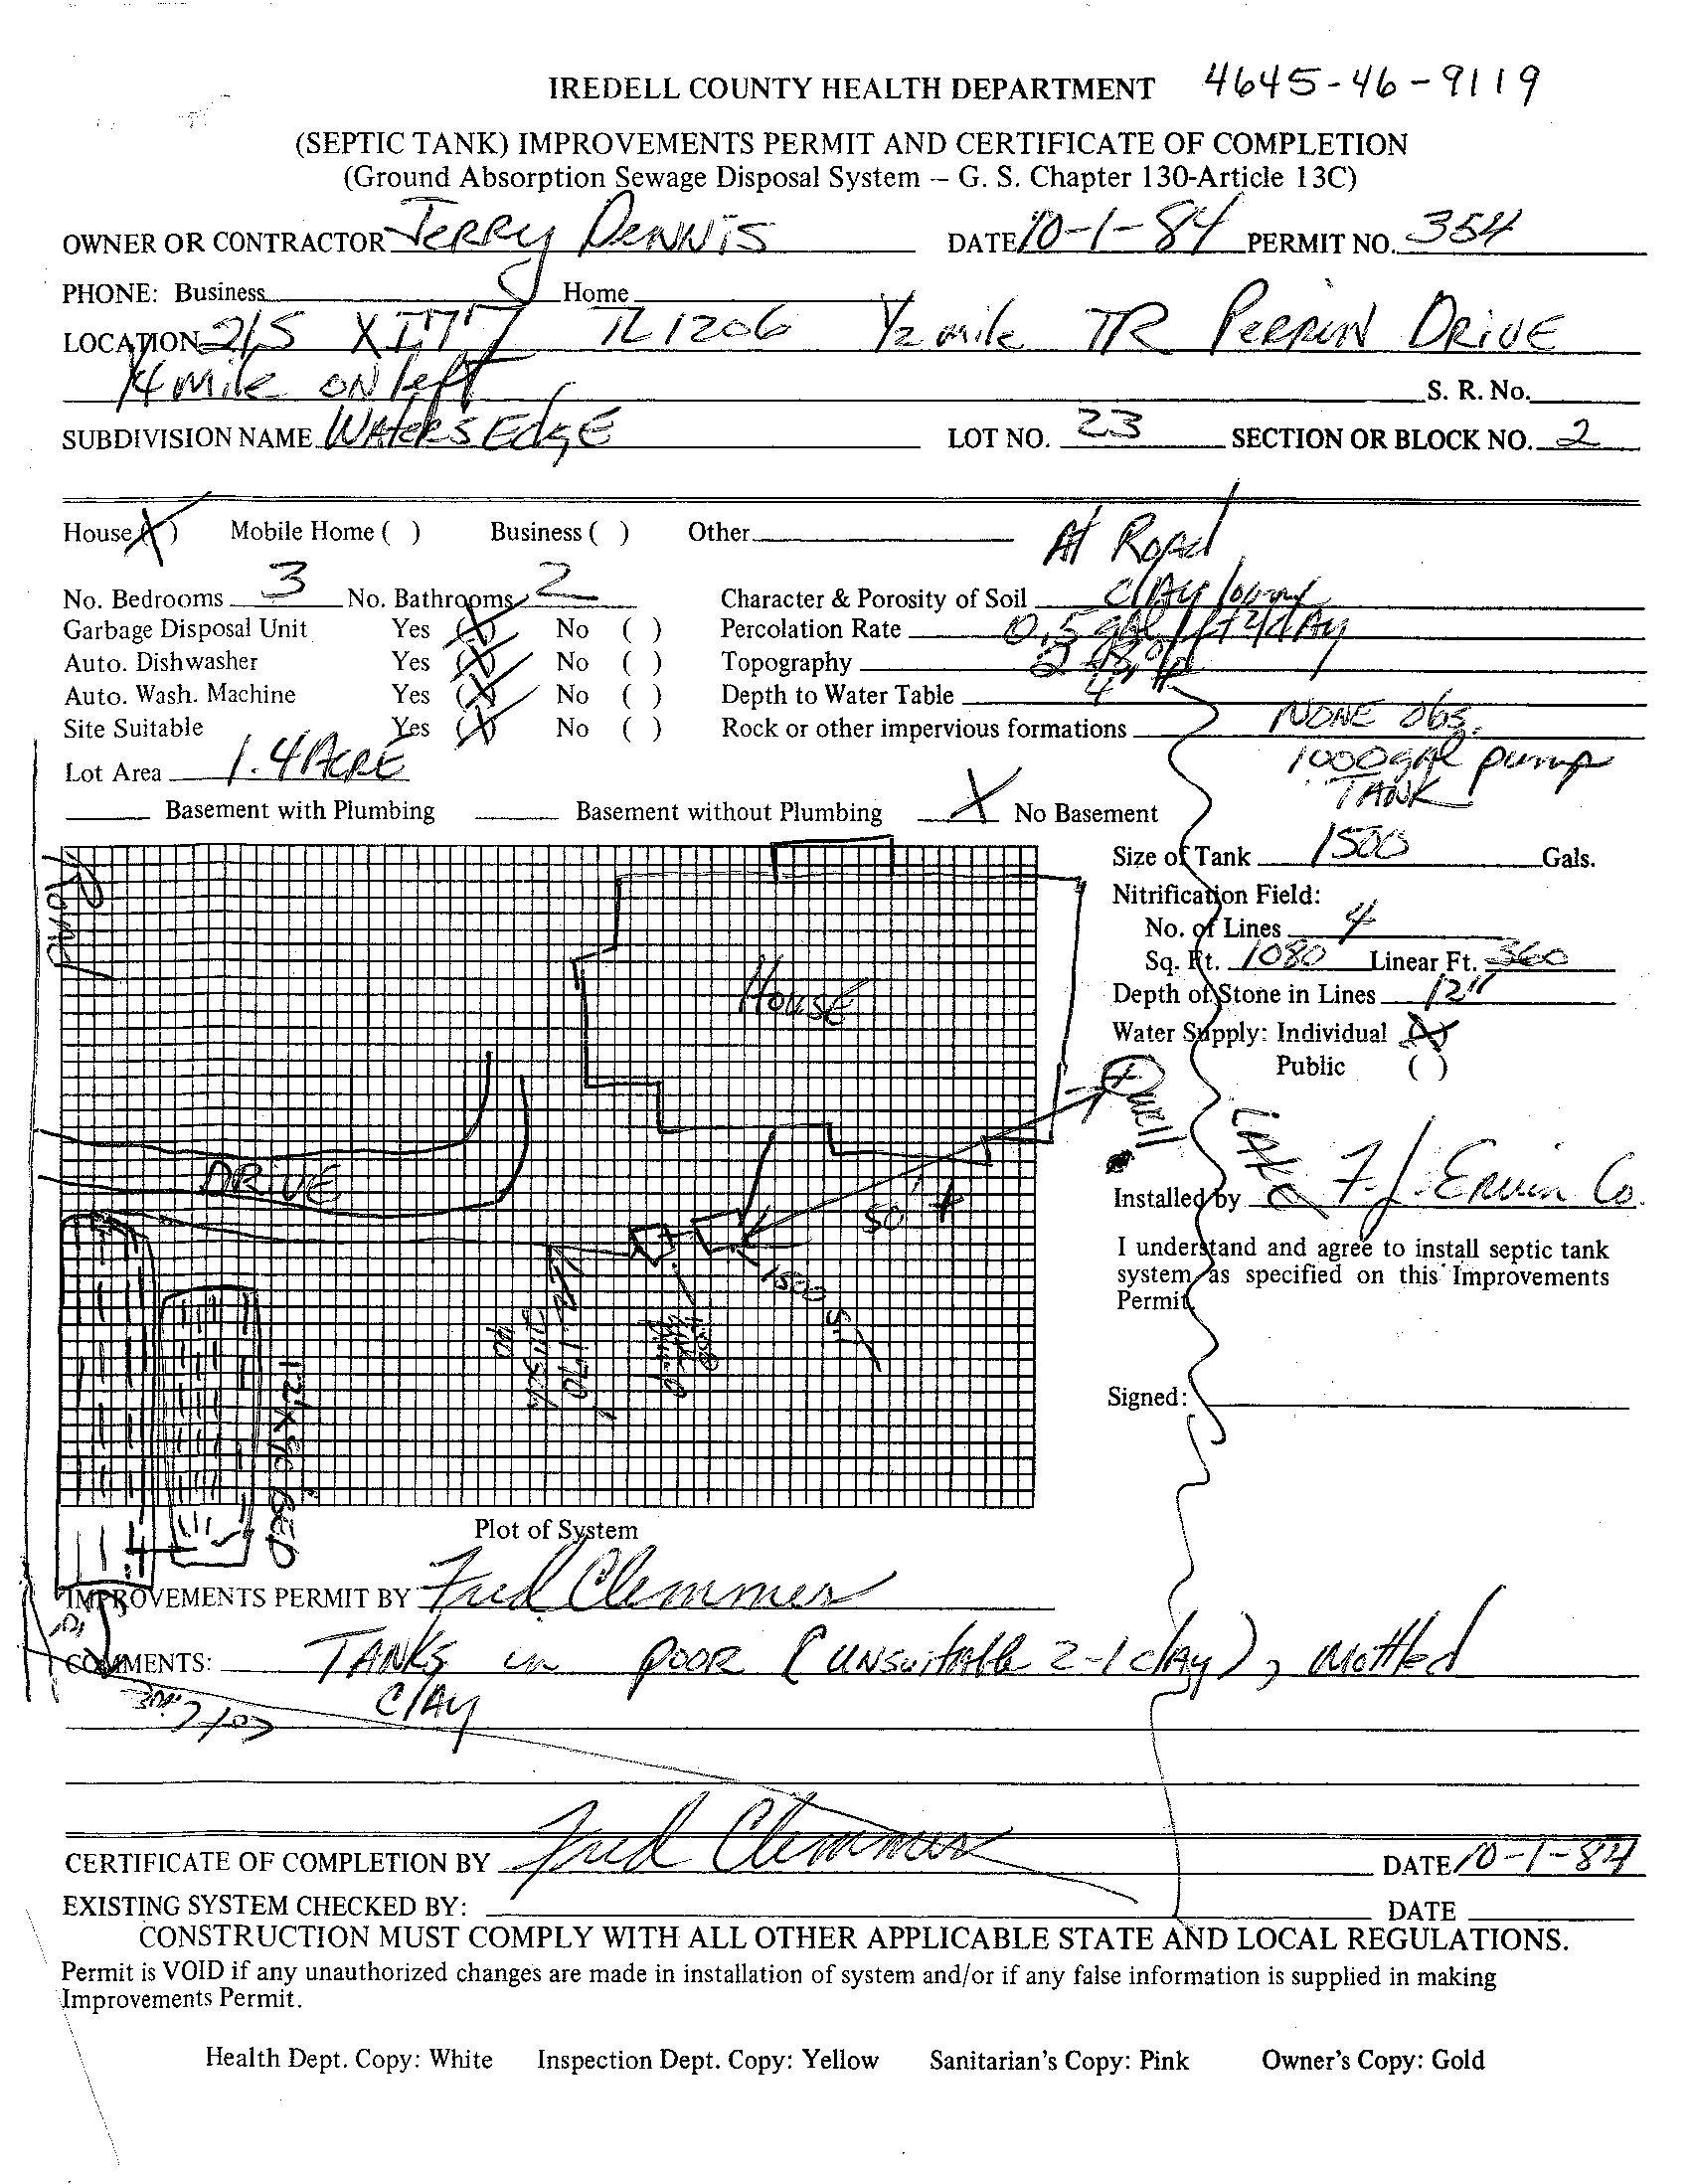 IREDELL COUNTY HEALTH DEPARTMENT 4645-46-9119
(SEPTIC TANK) IMPROVEMENTS PERMIT AND CERTIFICATE OF COMPLETION
(Ground Absorption Sewage Disposal System -- G. S. Chapter 130-Article 13C)
OWNER OR CONTRACTOR Jerry Dennis DATE 10-1-84 PERMIT NO. 354
PHONE: Business Home
LOCATION 21S XI77 TL1206 1/2 mile TR Perrin Drive
1/4 mile on left S. R. No.
SUBDIVISION NAME Waters Edge LOT NO. 23 SECTION OR BLOCK NO. 2
House (X) Mobile Home ( ) Business ( ) Other At Road
No. Bedrooms 3 No. Bathrooms 2 Character & Porosity of Soil clay loamy
Garbage Disposal Unit Yes (X) No ( ) Percolation Rate 0.5 gal/ft2/day
Auto. Dishwasher Yes (X) No ( ) Topography
Auto. Wash. Machine Yes (X) No ( ) Depth to Water Table 4'
Site Suitable Yes (X) No ( ) Rock or other impervious formations NONE obs.
Lot Area 1.4 Acre
1000gal pump
TANK
Basement with Plumbing Basement without Plumbing X No Basement
Size of Tank 1500 Gals.
Nitrification Field:
No. of Lines 4
Sq. Ft. 1080 Linear Ft. 360
Depth of Stone in Lines 12"
Water Supply: Individual (X)
Public ( )
Road
House
Well
DRIVE
50' +
1500 S.T.
170'
12'x90' BED
Installed by F.J. Ervin Co.
I understand and agree to install septic tank
system as specified on this Improvements
Permit.
Signed:
Plot of System
IMPROVEMENTS PERMIT BY Fred Clemmer
COMMENTS: TANKS in poor (unsuitable 2-1 clay), mottled
clay
CERTIFICATE OF COMPLETION BY Fred Clemmer DATE 10-1-84
EXISTING SYSTEM CHECKED BY: DATE
CONSTRUCTION MUST COMPLY WITH ALL OTHER APPLICABLE STATE AND LOCAL REGULATIONS.
Permit is VOID if any unauthorized changes are made in installation of system and/or if any false information is supplied in making
Improvements Permit.
Health Dept. Copy: White Inspection Dept. Copy: Yellow Sanitarian's Copy: Pink Owner's Copy: Gold